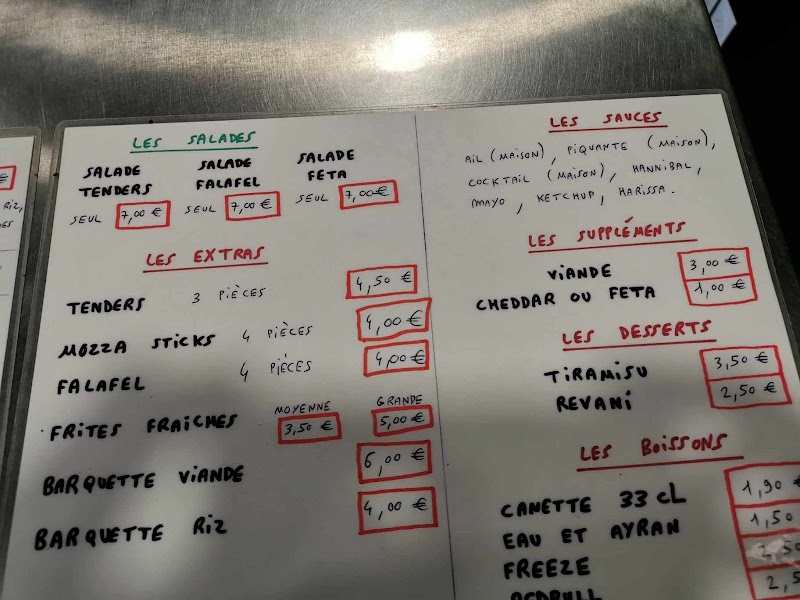 €
RIZ,
LES SALADES
SALADE TENDERS
SALADE FALAFEL
SALADE FETA
SEUL 7,00 €
SEUL 7,00 €
SEUL 7,00 €
LES EXTRAS
TENDERS 3 PIÈCES 4,50 €
MOZZA STICKS 4 PIÈCES 4,00 €
FALAFEL 4 PIÈCES 4,00 €
MOYENNE GRANDE
FRITES FRAICHES 3,50 € 5,00 €
BARQUETTE VIANDE 6,00 €
BARQUETTE RIZ 4,00 €
LES SAUCES
AIL (MAISON), PIQUANTE (MAISON),
COCKTAIL (MAISON), HANNIBAL,
MAYO, KETCHUP, HARISSA.
LES SUPPLÉMENTS
VIANDE 3,00 €
CHEDDAR OU FETA 1,00 €
LES DESSERTS
TIRAMISU 3,50 €
REVANI 2,50 €
LES BOISSONS
CANETTE 33 CL 1,90 €
EAU ET AYRAN 1,50
FREEZE 2,50